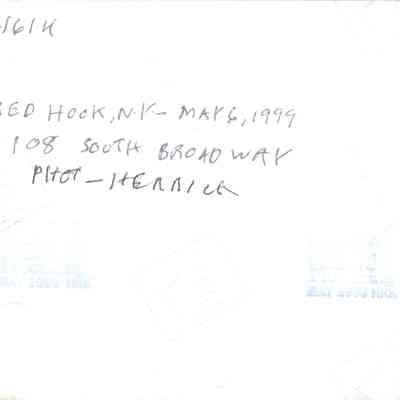 161K
RED HOOK, N.Y- MAY 6, 1999
108 SOUTH BROADWAY
PHOT - HERRICK